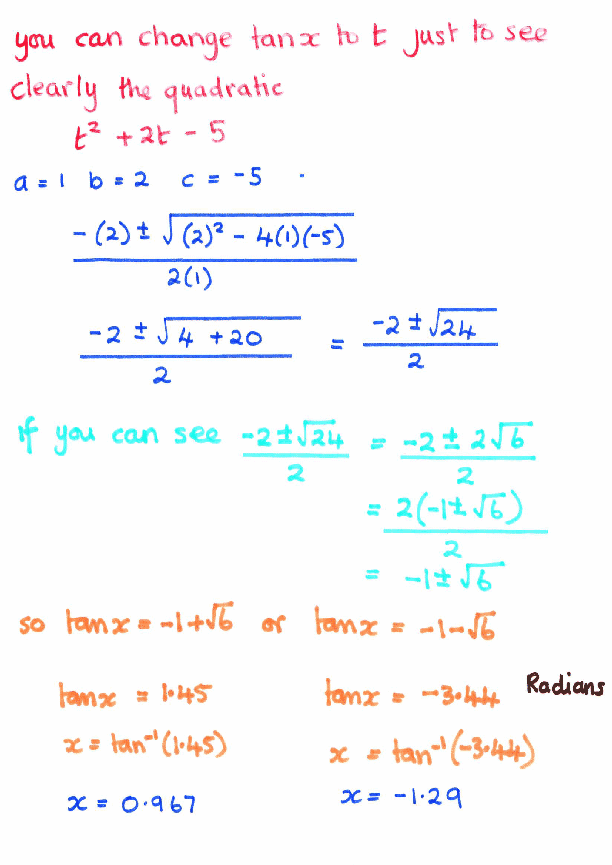 you can change tanx to t just to see
clearly the quadratic
t² + 2t - 5
a = 1 b = 2 c = -5
-(2) ± √(2)² - 4(1)(-5)
2(1)
-2 ± √4 + 20 = -2 ± √24
2 2
if you can see -2±√24 = -2 ± 2√6
2 2
= 2(-1±√6)
2
= -1±√6
so tanx = -1+√6 or tanx = -1-√6
tanx = 1.45 tanx = -3.44 Radians
x = tan⁻¹(1.45) x = tan⁻¹(-3.44)
x = 0.967 x = -1.29